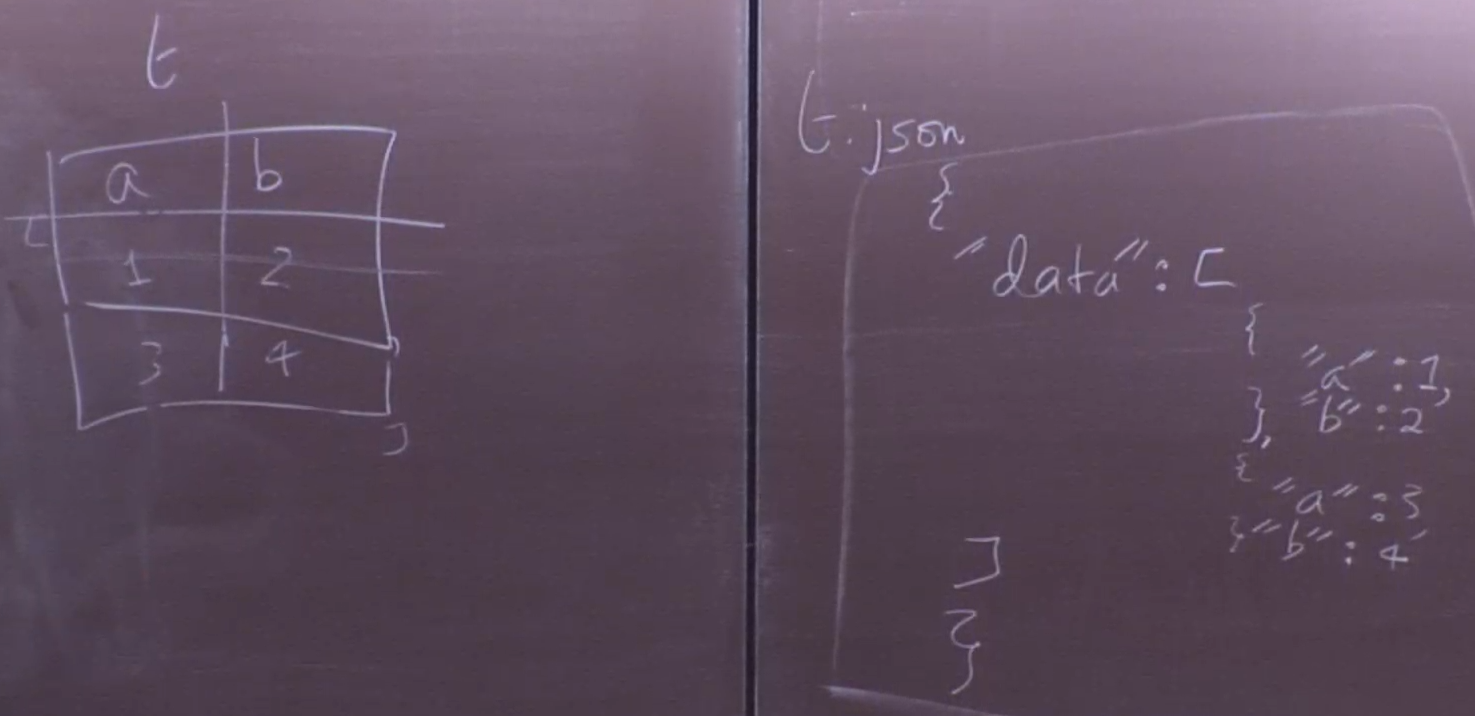 t
a b
[
1 2
3 4
]
t.json
{
"data": [
{
"a" : 1,
}, "b" : 2
{
"a" : 3
} "b" : 4
]
}